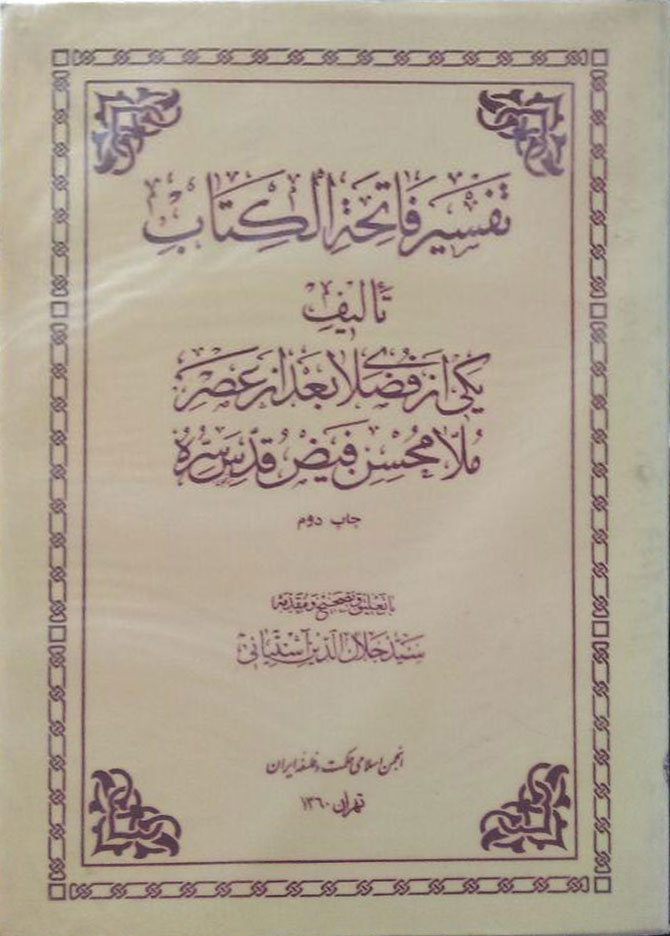 تفسير فاتحة الكتاب
تأليف
يكى از فضلاى بعد از عصر
ملا محسن فيض قدس سره
چاپ دوم
با تعليق و تصحيح و مقدمه
سيد جلال الدين آشتيانى
انجمن اسلامى حكمت و فلسفه ايران
تهران ١٣٦٠